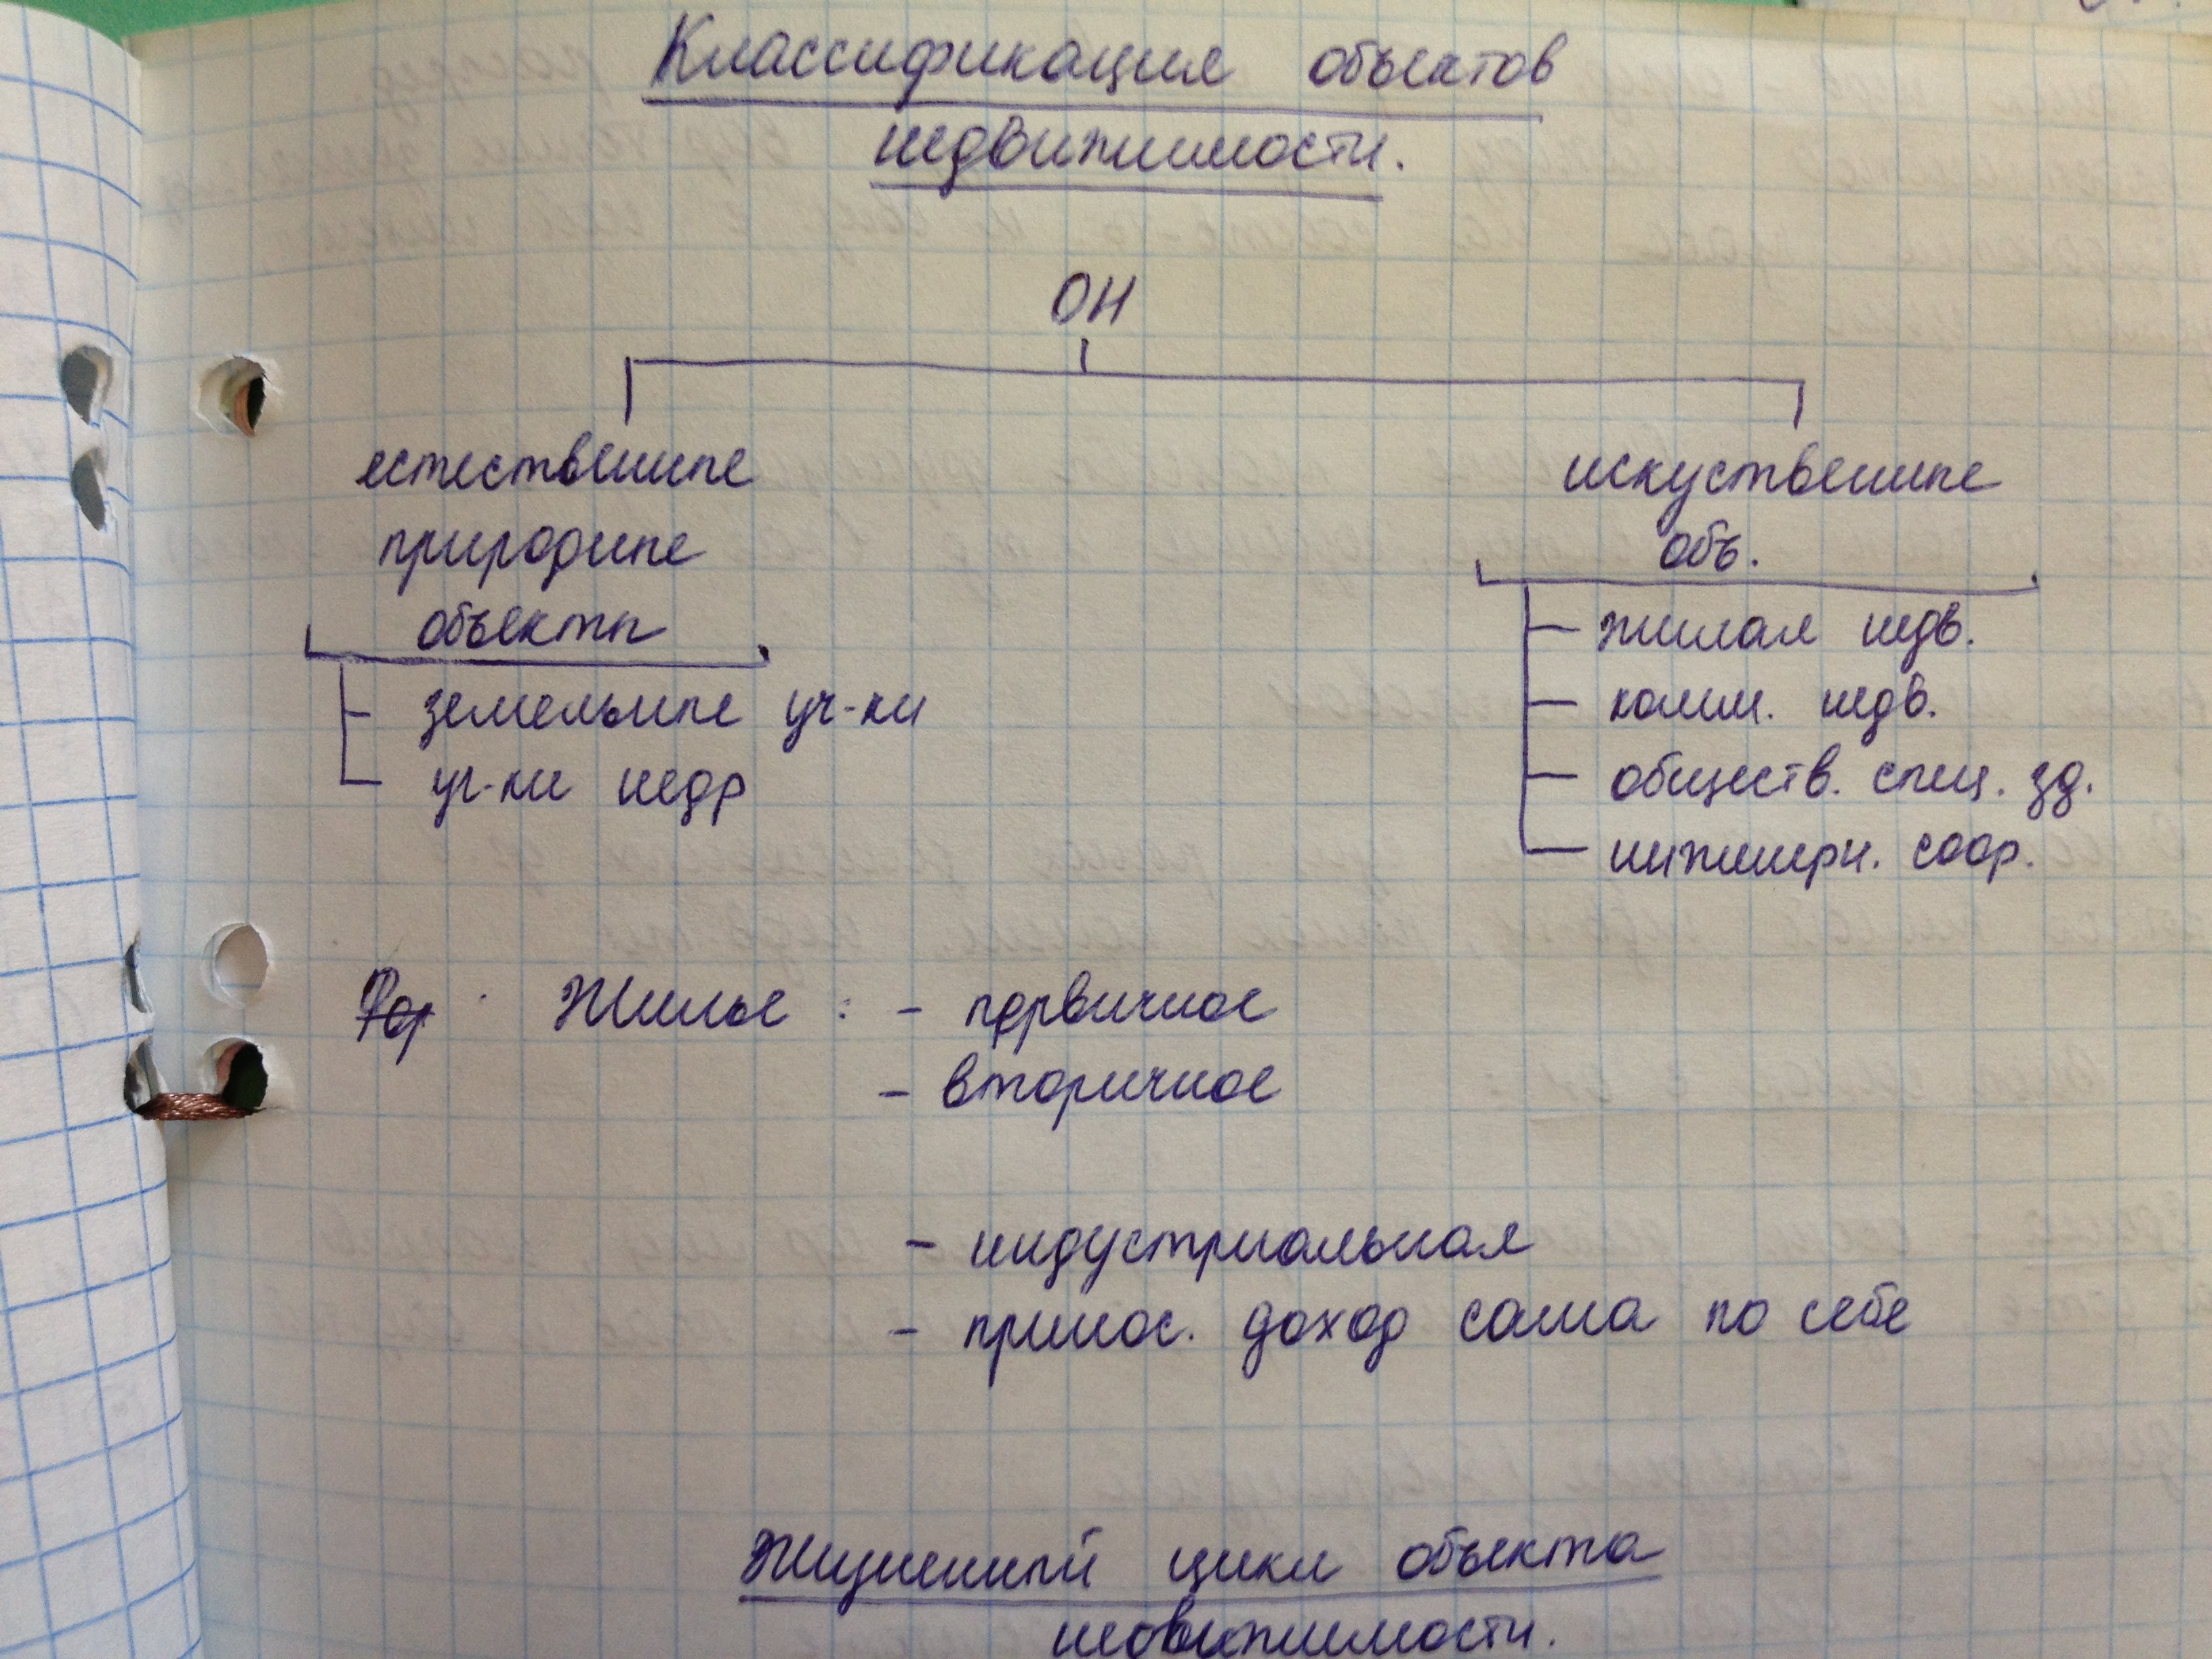 Классификация объектов
недвижимости.
ОН
естественные
природные
объекты
земельные уч-ки
уч-ки недр
искуственные
объ.
жилая недв.
комм. недв.
обществ. спец. зд.
инженерн. соор.
Жилье : - первичное
- вторичное
- индустриальная
- принос. доход сама по себе
Жизненный цикл объекта
недвижимости.